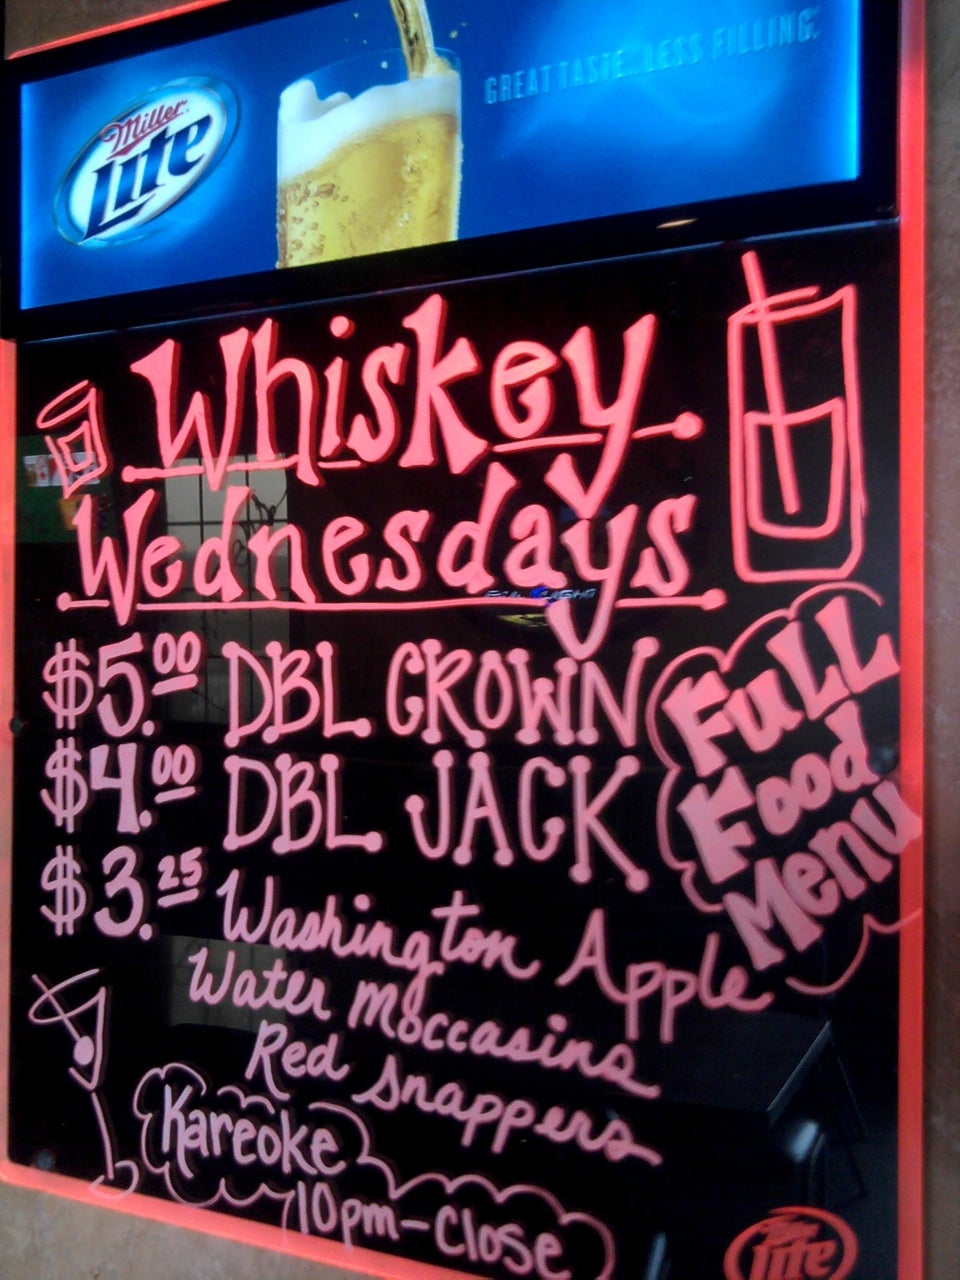 Miller
Lite
GREAT TASTE...LESS FILLING.
Whiskey
Wednesdays
$5.00 DBL CROWN
$4.00 DBL JACK
$3.25 Washington Apple
Water Moccasins
Red Snappers
FuLL
Food
Menu
Kareoke
10pm-Close
Miller
Lite